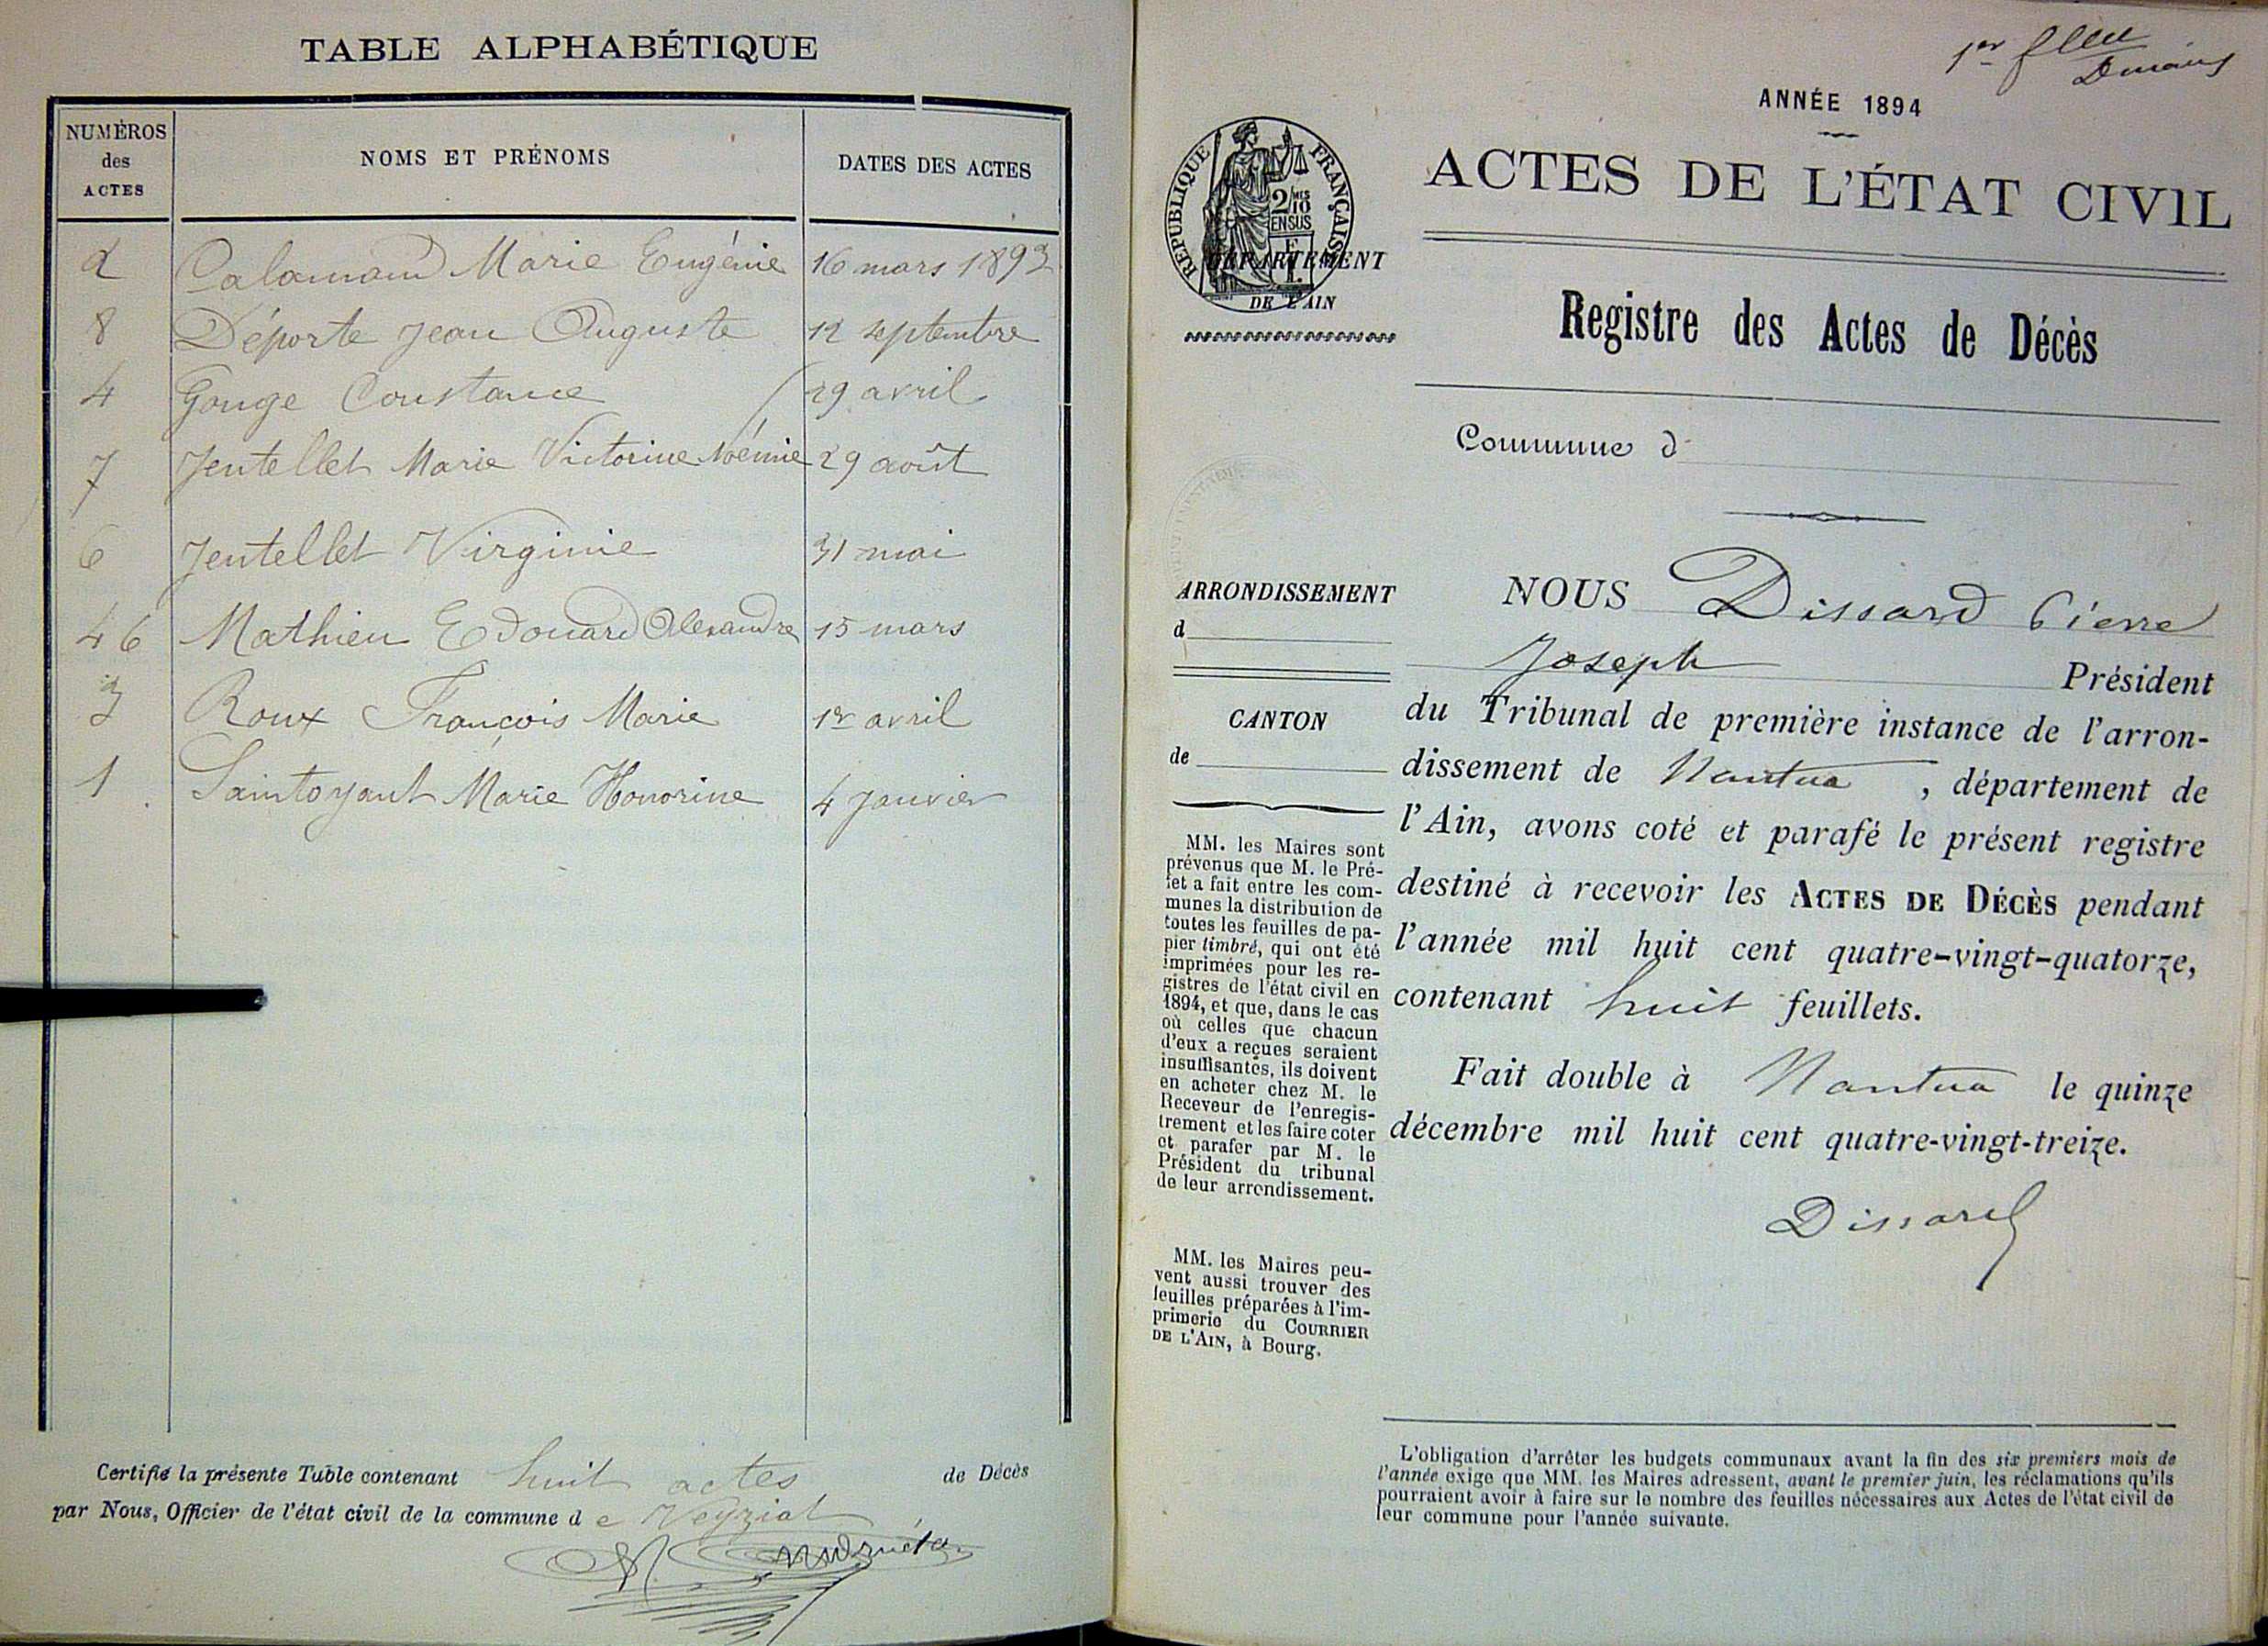 TABLE ALPHABÉTIQUE
NUMÉROS des ACTES
NOMS ET PRÉNOMS
DATES DES ACTES
2 Calamand Marie Eugénie 16 mars 1893
8 Déporte Jean Auguste 12 septembre
4 Gouge Constance 29 avril
7 Jentellet Marie Victorine Noémie 29 août
6 Jentellet Virginie 31 mai
46 Mathieu Edouard Alexandre 15 mars
3 Roux François Marie 1er avril
1 Saintoyant Marie Honorine 4 Janvier
Certifié la présente Table contenant huit actes de Décès
par Nous, Officier de l'état civil de la commune de Veyziat
1er
ANNÉE 1894
ACTES DE L'ÉTAT CIVIL
RÉPUBLIQUE FRANÇAISE
2/10 MES
EN SUS
DÉPARTEMENT
DE L'AIN
Registre des Actes de Décès
Commune d
ARRONDISSEMENT
d
CANTON
de
MM. les Maires sont
prévenus que M. le Pré-
fet a fait entre les com-
munes la distribution de
toutes les feuilles de pa-
pier timbré, qui ont été
imprimées pour les re-
gistres de l'état civil en
1894, et que, dans le cas
où celles que chacun
d'eux a reçues seraient
insuffisantes, ils doivent
en acheter chez M. le
Receveur de l'enregis-
trement et les faire coter
et parafer par M. le
Président du tribunal
de leur arrondissement.
MM. les Maires peu-
vent aussi trouver des
feuilles préparées à l'im-
primerie du COURRIER
DE L'AIN, à Bourg.
NOUS Dissard Pierre
Joseph Président
du Tribunal de première instance de l'arron-
dissement de Nantua, département de
l'Ain, avons coté et parafé le présent registre
destiné à recevoir les ACTES DE DÉCÈS pendant
l'année mil huit cent quatre-vingt-quatorze,
contenant huit feuillets.
Fait double à Nantua le quinze
décembre mil huit cent quatre-vingt-treize.
Dissard
L'obligation d'arrêter les budgets communaux avant la fin des six premiers mois de
l'année exige que MM. les Maires adressent, avant le premier juin, les réclamations qu'ils
pourraient avoir à faire sur le nombre des feuilles nécessaires aux Actes de l'état civil de
leur commune pour l'année suivante.